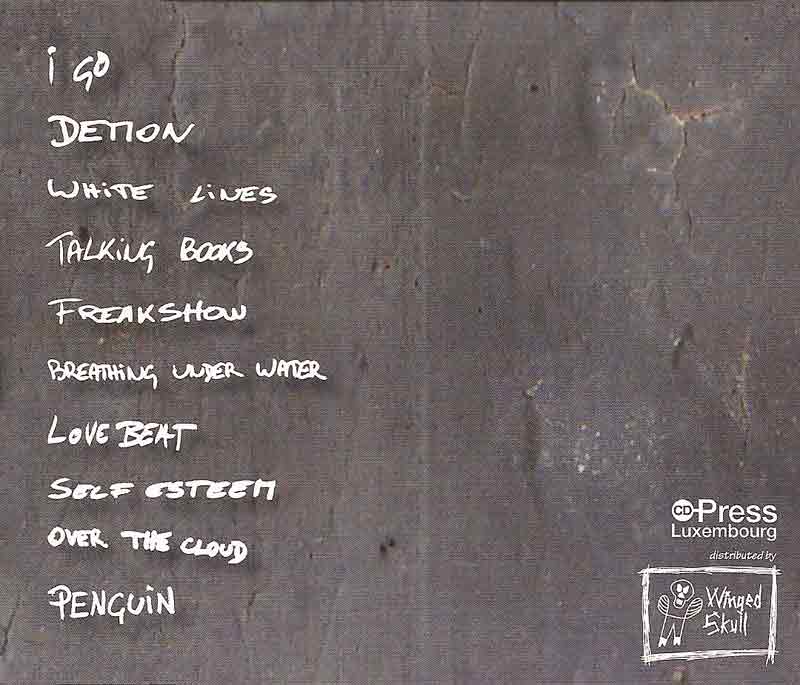 i GO
DEMON
WHiTE LiNES
TALKiNG BOOKS
FREAKSHOW
BREATHING UNDER WATER
LOVE BEAT
SELF ESTEEM
OVER THE CLOUD
PENGUiN
CD-Press
Luxembourg
distributed by
Winged
Skull